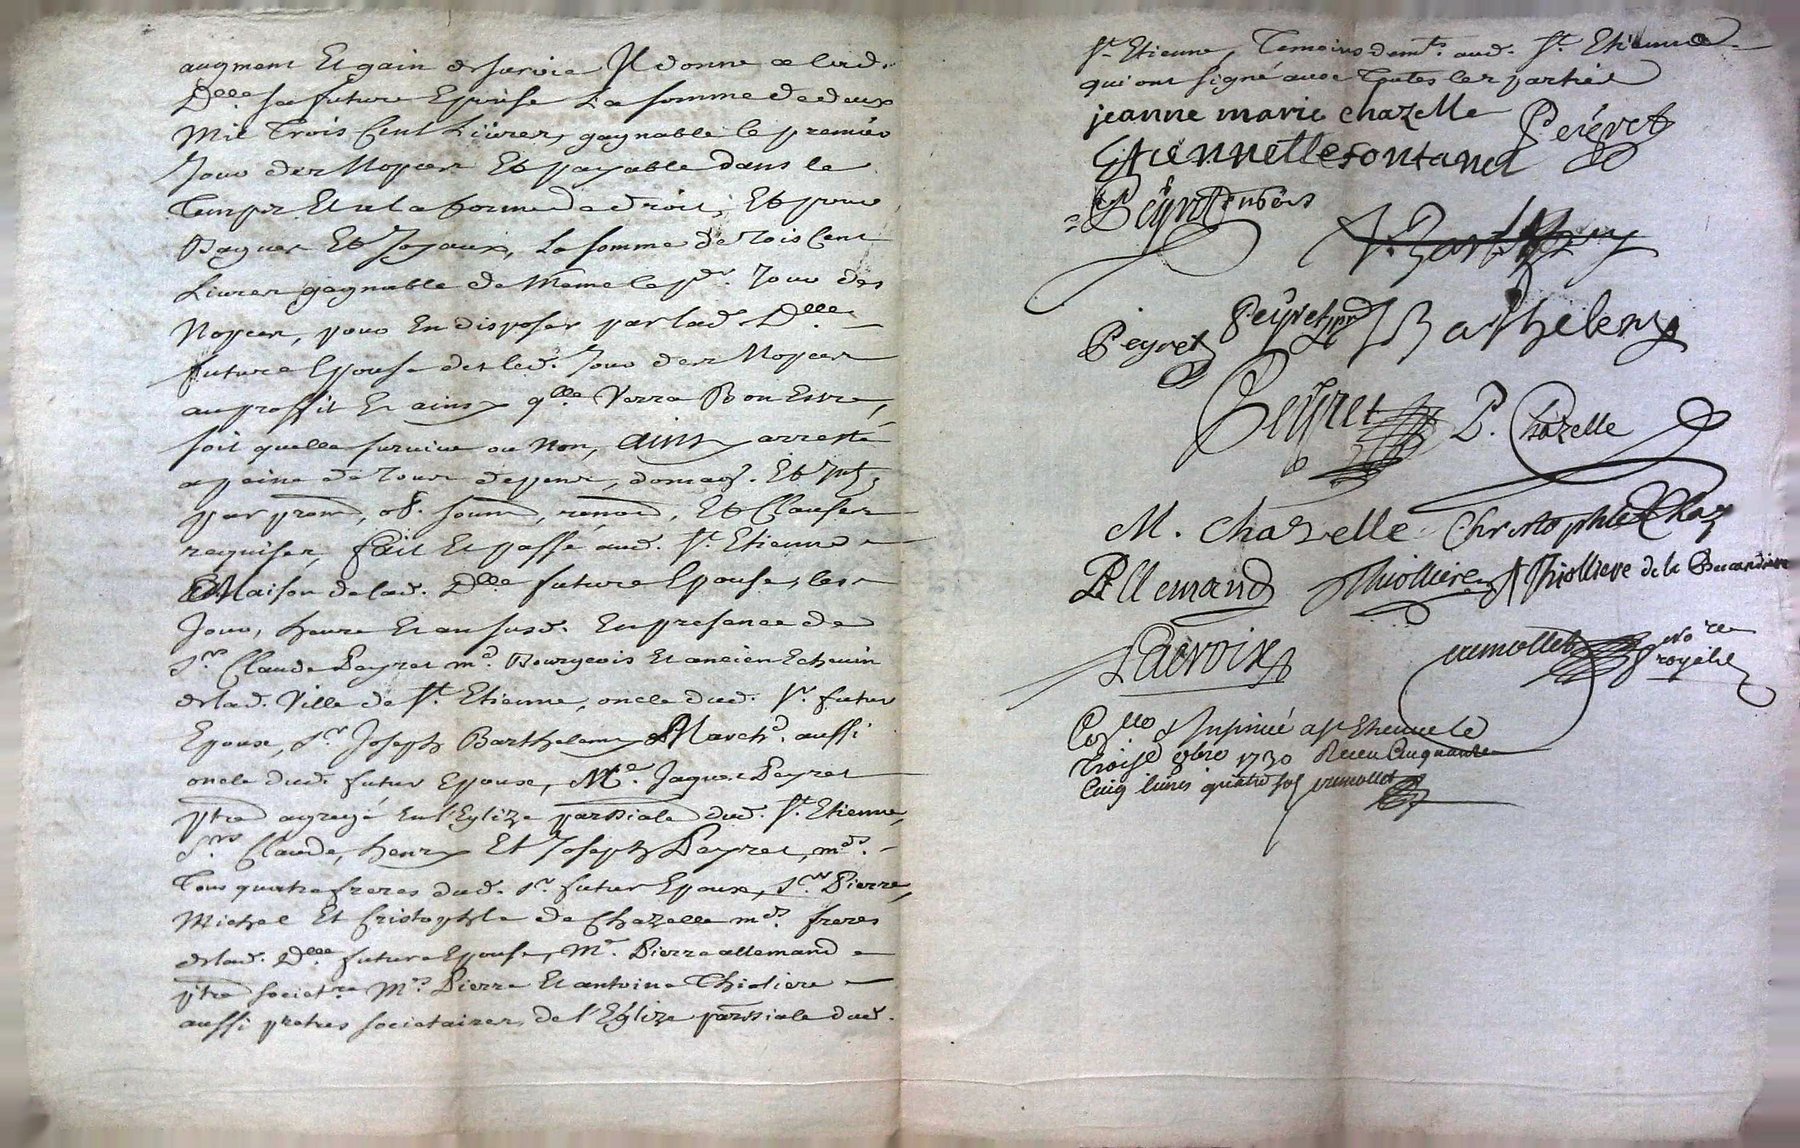 augment Et gain de survie Il donne a lad.
Dlle sa future Epouse La somme de deux
Mil Trois Cent Livres, gagnable le premier
Jour des Nopces Et payable dans le
Temps Et a la forme de droit, Et pour
Bagues Et Joyaux, La somme de Trois Cent
Livres gagnable de Meme le pr. Jour des
Nopces, pour En disposer par lad. Dlle
future Epouse des led. Jour des Nopces
au proffit Et ainsy qlle Verra Bon Estre,
soit quelle survive ou Non, ainsy arresté
a peine de Tous depens, domag. Et Int.
par prom, ob. soum, renon, Et Clauses
requises, fait Et passé aud. St. Etienne
Maison de lad. Dlle future Epouse, les
Jour, heure Et an susd. En presence de
Sr. Claude Peyret md. Bourgeois Et ancien Echevin
de lad. Ville de St. Etienne, oncle dud. Sr. futur
Epoux, Sr. Joseph Barthelemy Marchd. aussi
oncle dud. futur Epoux, Me. Jaques Peyret
ptre agregé En l'Eglize parssiale dud. St. Etienne,
Srs Claude, henry Et Joseph Peyret, mds.
Tous quatre freres dud. Sr. futur Epoux, Srs Pierre,
Michel Et Cristophle de Chazelle mds. freres
de lad. Dlle future Epouse, Mr. Pierre allemand
ptre societre Mrs. Pierre Et antoine Thioliere
aussi pretres societaires de l'Eglize parssiale dud.
St. Etienne, Temoins demts. aud. St. Etienne
qui ont signé avec Toutes les parties
jeanne marie chazelle Peyret
Etiennette fontanel
Peyret
Peyret Peyret Barthelemy
Peyret P. Chazelle
M. Chazelle Christophle Chaz
P. Allemand Thiolliere Thiolliere de la
Lacroix cremollet no.re royal
Co.llé & Insinué a St Etienne le
Troise 8bre 1730 Receu Cinquante
Cinq livres quatre sols cremollet